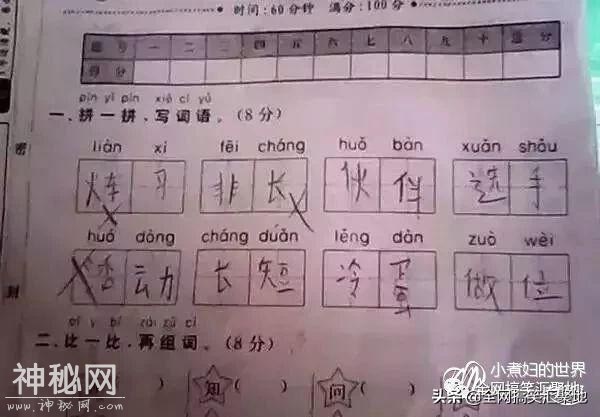 时间：60分钟 满分：100分
题号 一 二 三 四 五 六 七 八 九 十 总分
得分
pīn yì pīn xiě cí yǔ
一、拼一拼，写词语。(8分)
密
liàn xí fēi cháng huǒ bàn xuǎn shǒu
炼 习 非 长 伙 伴 选 手
huó dòng cháng duǎn lěng dàn zuò wèi
动 长 短 冷 蛋 做 位
封
bǐ yì bǐ zài zǔ cí
二、比一比，再组词。(8分)
) 知 ( ) 问 ( )
神秘网
www.shenmi.com.cn
小煮妇的世界
全网搞笑汇聚地
头条@全网搞笑汇聚地